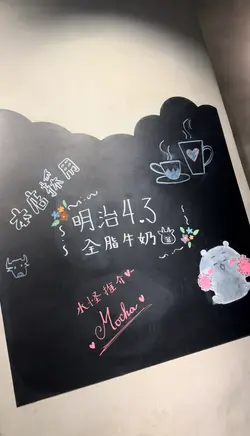 本店採用
明治4.3
全脂牛奶
水怪推介
Mocha